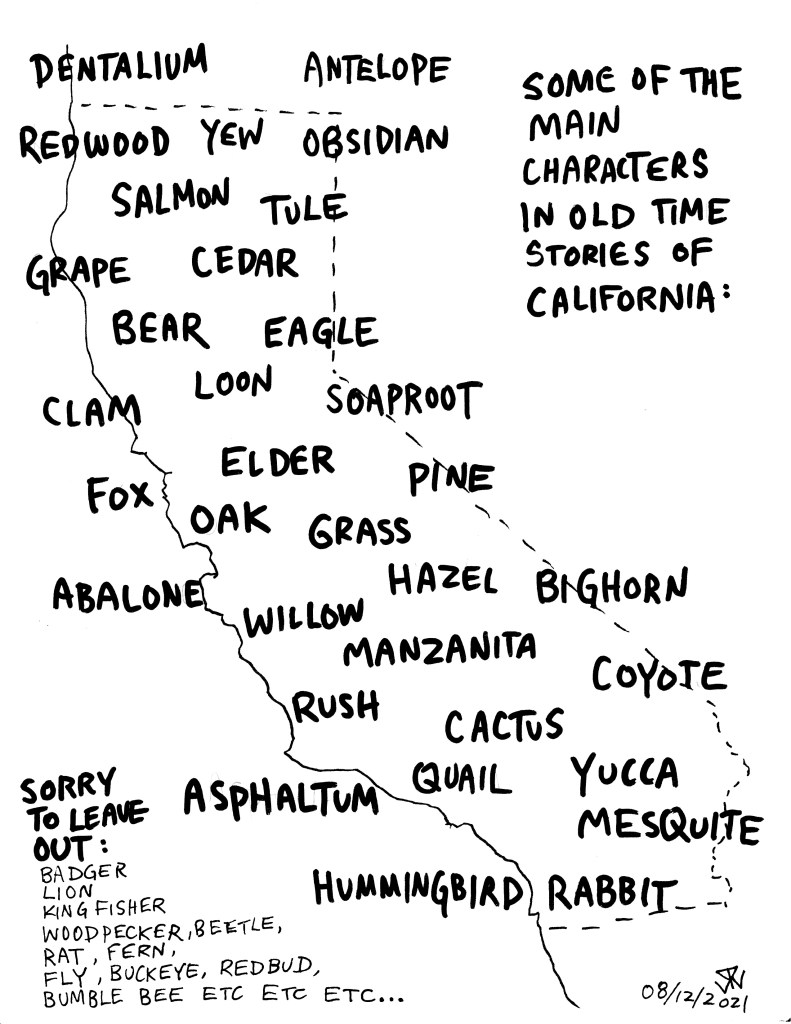 SOME OF THE
MAIN
CHARACTERS
IN OLD TIME
STORIES OF
CALIFORNIA:
DENTALIUM
ANTELOPE
REDWOOD
YEW
OBSIDIAN
SALMON
TULE
GRAPE
CEDAR
BEAR
EAGLE
LOON
CLAM
SOAPROOT
ELDER
PINE
FOX
OAK
GRASS
HAZEL
BIGHORN
ABALONE
WILLOW
MANZANITA
COYOTE
RUSH
CACTUS
QUAIL
YUCCA
ASPHALTUM
MESQUITE
HUMMINGBIRD
RABBIT
SORRY
TO LEAVE
OUT:
BADGER
LION
KINGFISHER
WOODPECKER, BEETLE,
RAT, FERN,
FLY, BUCKEYE, REDBUD,
BUMBLE BEE ETC ETC ETC...
08/12/2021